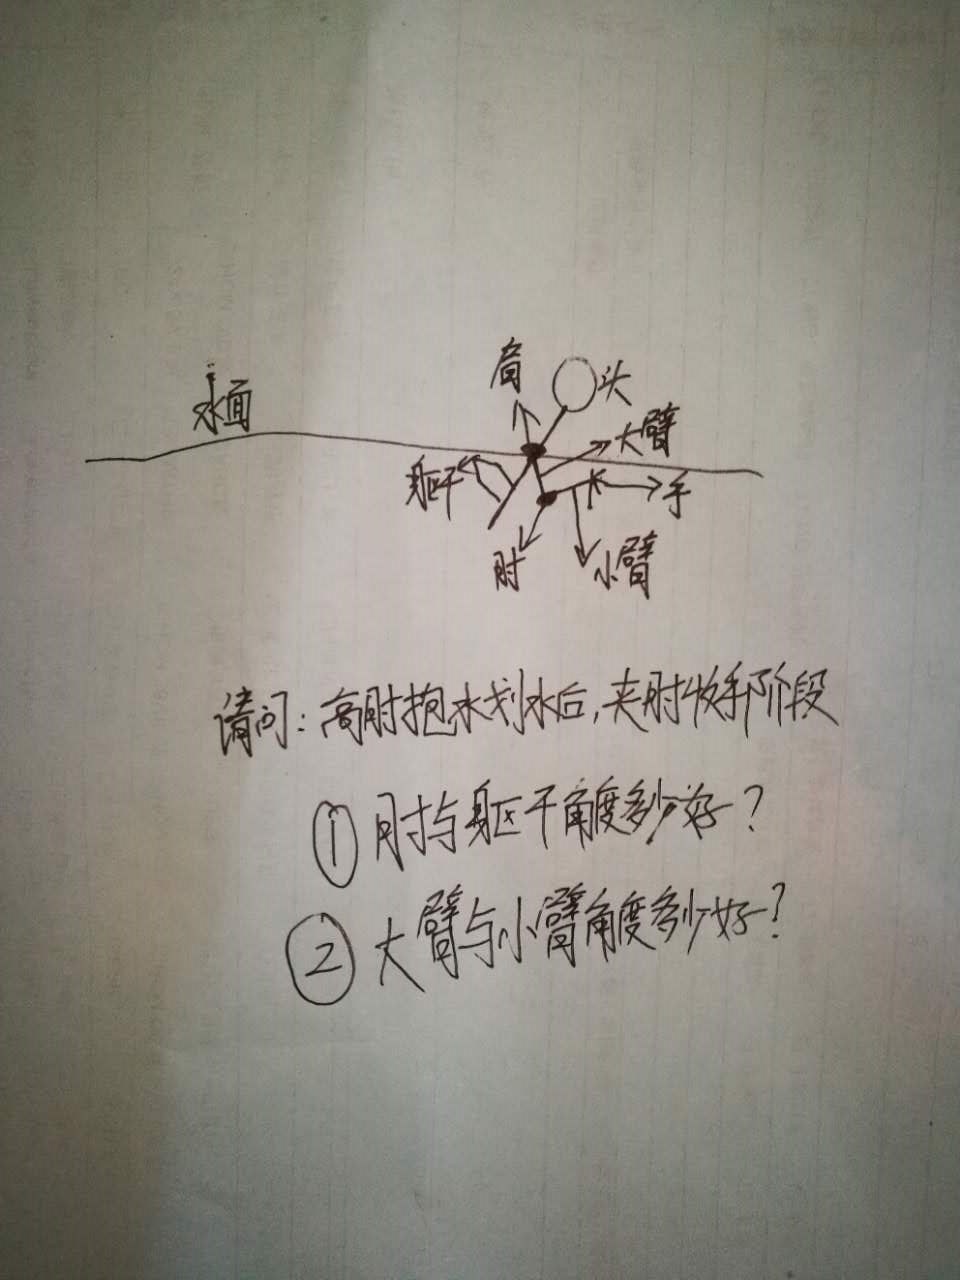 水面
肩
头
大臂
躯干
手
肘
小臂
请问：高肘抱水划水后，夹肘收手阶段
① 肘与躯干角度多少好？
② 大臂与小臂角度多少好？